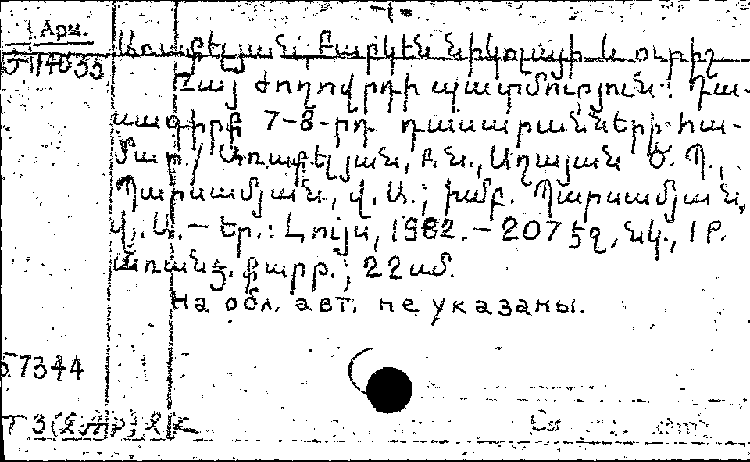 Арм.
Առաքելյան, Բարկեն Նիկոլայի և ուրիշ
Հայ ժողովրդի պատմություն: Դա-
սագիրք 7-8-րդ դասարանների հա-
մար / Առաքելյան, Բ. Ն., Աղայան Ծ. Պ.,
Պարսամյան, Վ. Ա.; խմբ. Պարսամյան,
Վ. Ա. — Եր.: Լույս, 1982. — 207 էջ, նկ., 1 Բ.
առանձ. քարտ.; 22 սմ.
На обл. авт. не указаны.
57344